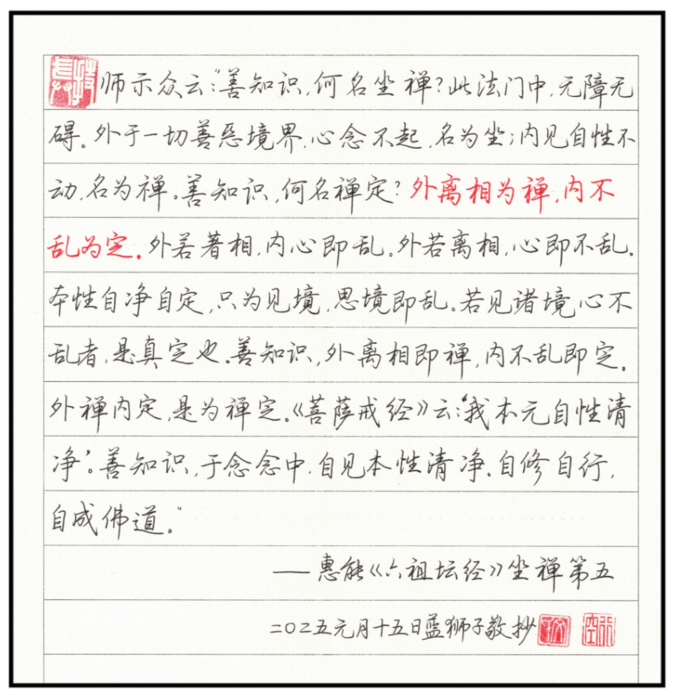 师示众云:“善知识,何名坐禅?此法门中,无障无
碍。外于一切善恶境界,心念不起,名为坐;内见自性不
动,名为禅。善知识,何名禅定?外离相为禅,内不
乱为定。外若著相,内心即乱。外若离相,心即不乱。
本性自净自定,只为见境,思境即乱。若见诸境心不
乱者,是真定也。善知识,外离相即禅,内不乱即定。
外禅内定,是为禅定。《菩萨戒经》云:‘我本元自性清
净’。善知识,于念念中,自见本性清净。自修自行,
自成佛道。”
——惠能《六祖坛经》坐禅第五
二〇二五元月十五日蓝狮子敬抄